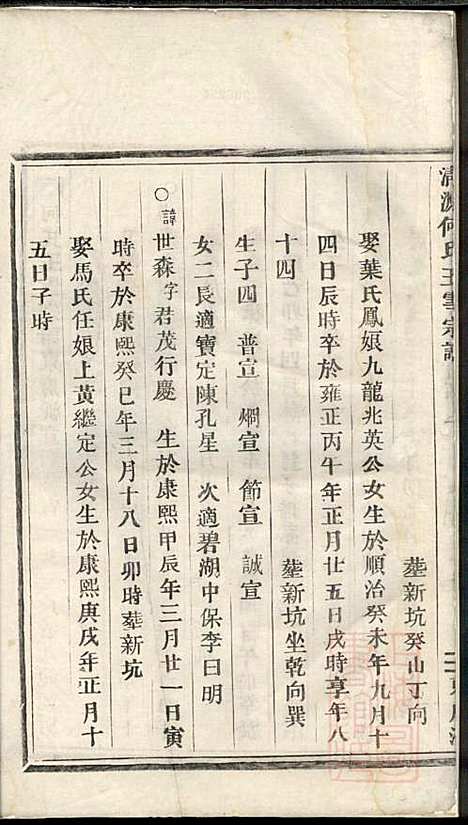 葬新坑癸山丁向
娶葉氏鳳娘九龍兆英公女生於順治癸未年九月十
四日辰時卒於雍正丙午年正月廿五日戌時享年八
十四　葬新坑坐乾向巽
生子四　普宣　炯宣　節宣　誠宣
女二長適寶定陳孔星　次適碧湖中保李日明
○諱世森字君茂行慶　生於康熙甲辰年三月廿一日寅
時卒於康熙癸巳年三月十八日卯時葬新坑
娶馬氏任娘上黃繼定公女生於康熙庚戌年正月十
五日子時